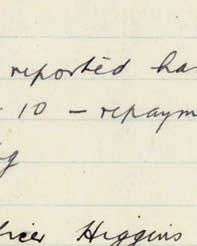 reported ha
10 - repaym
g
Higgins